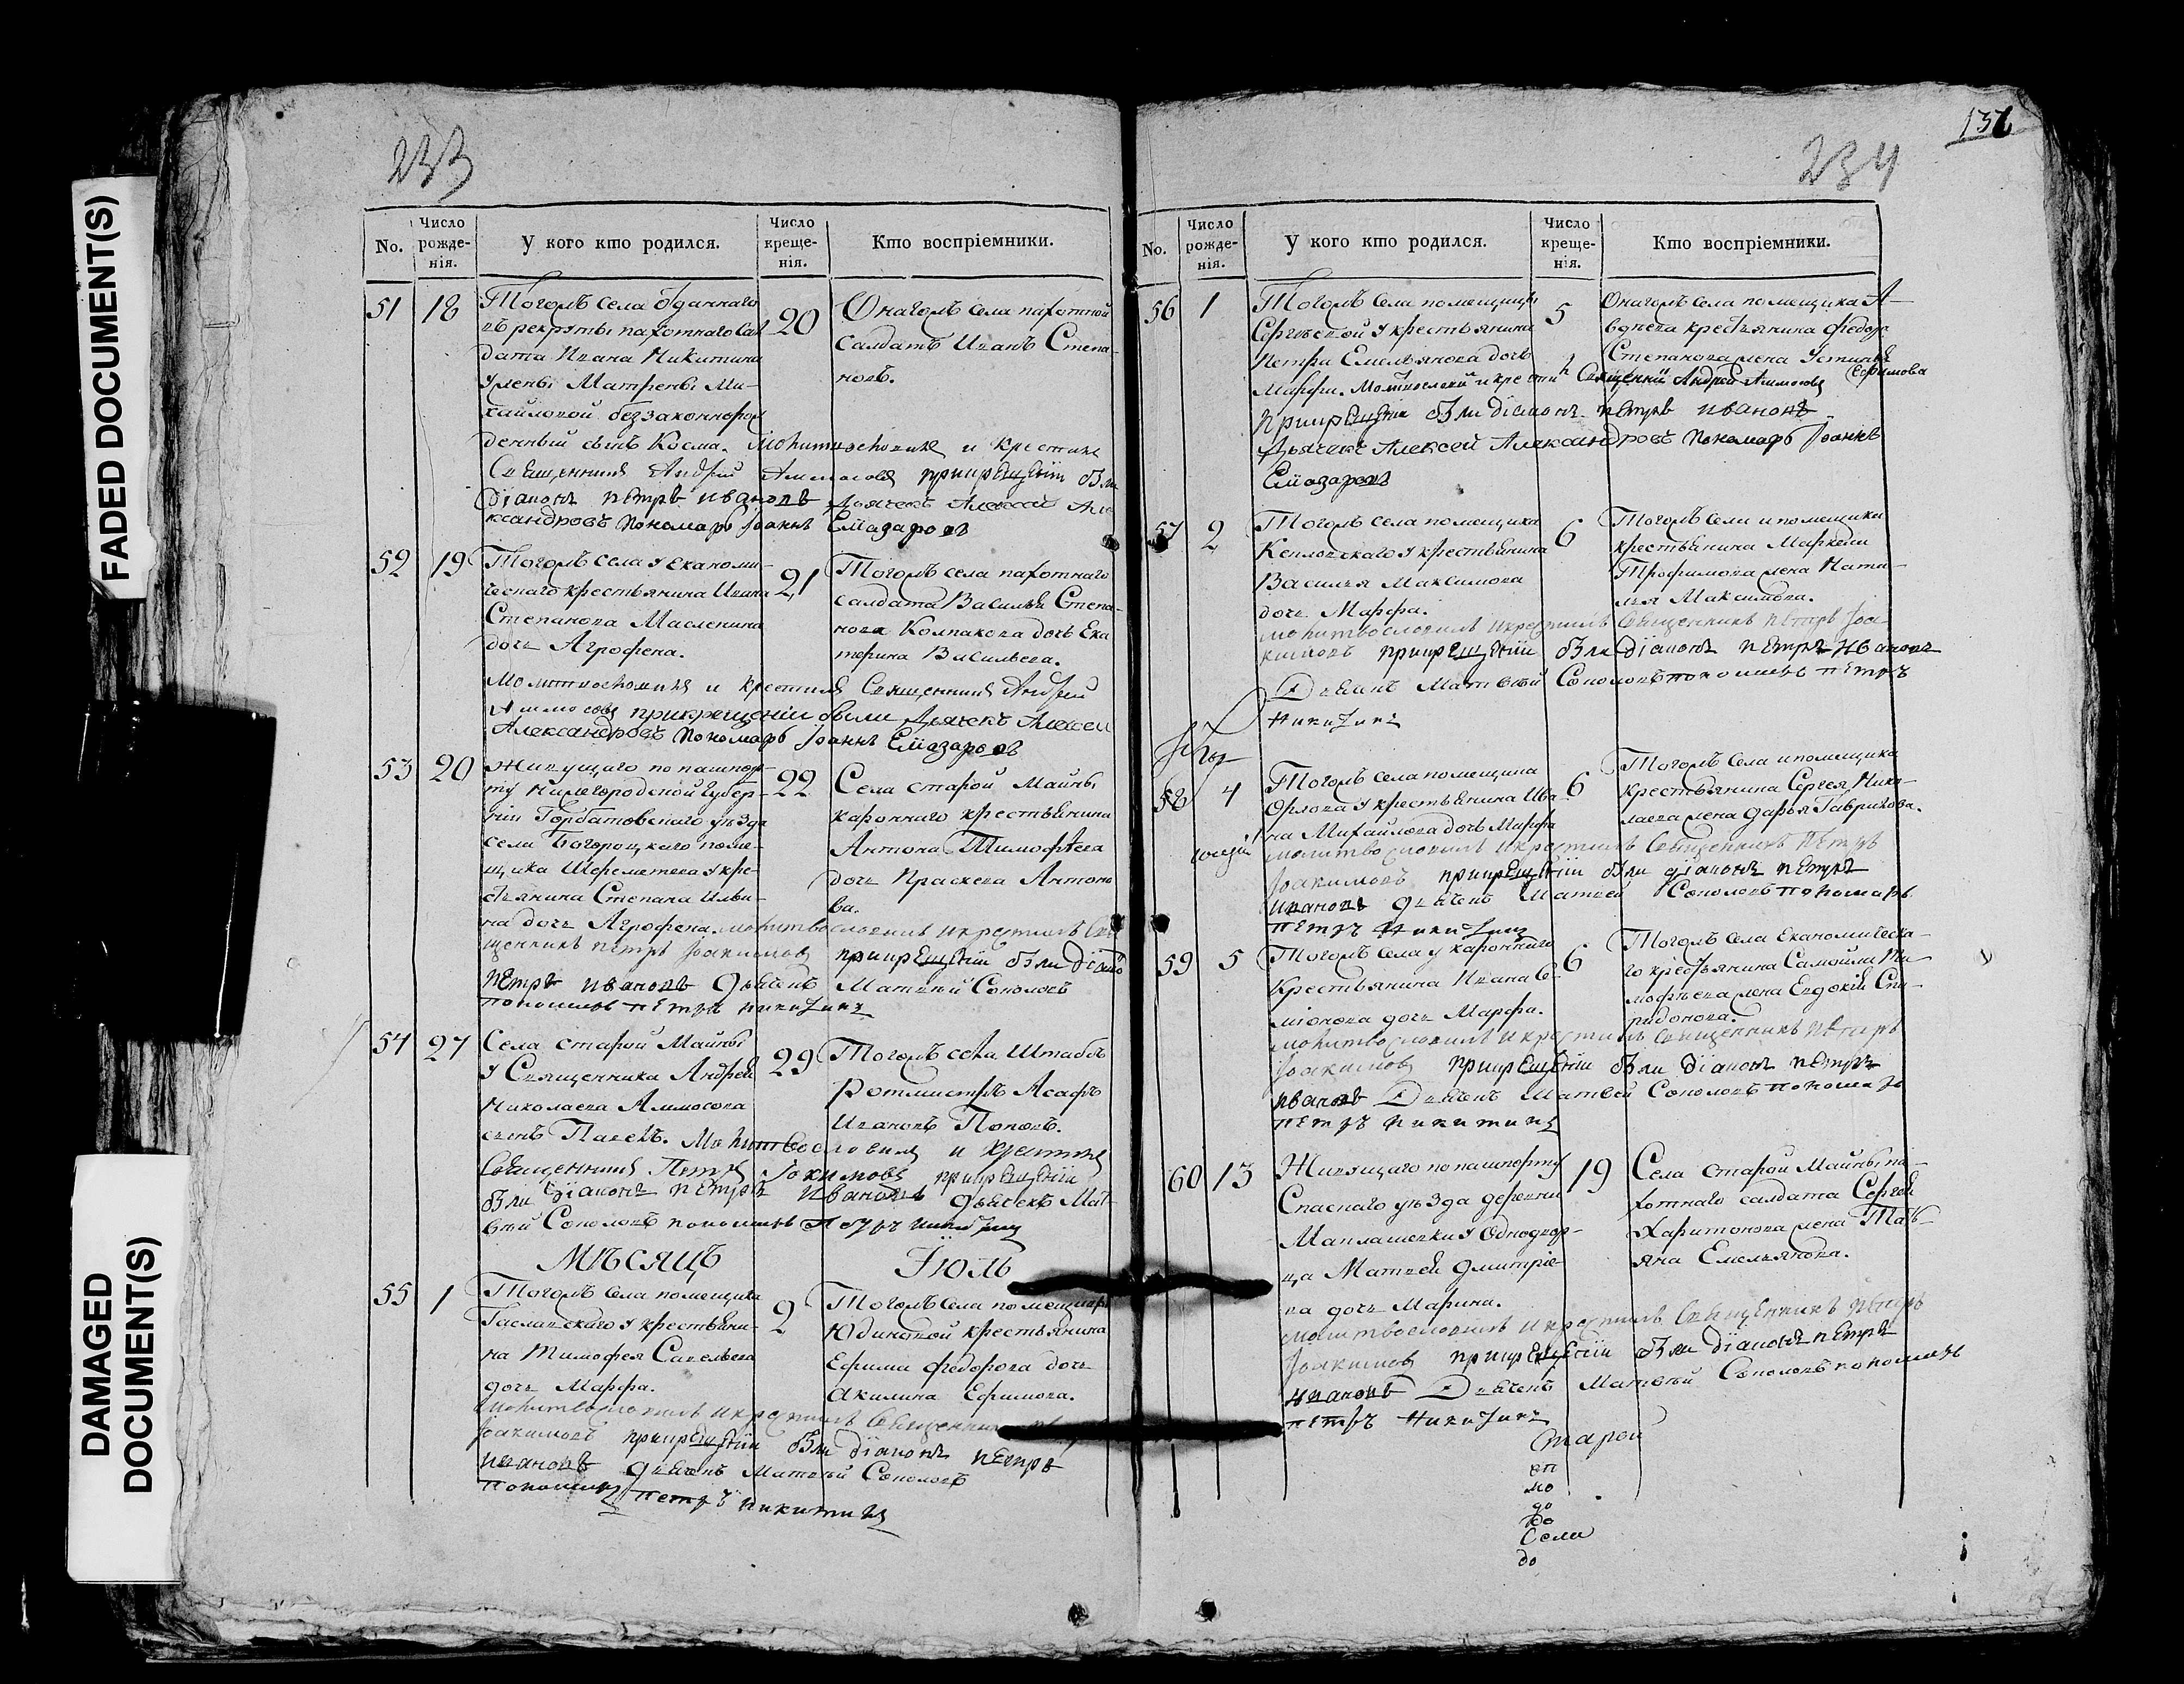 FADED DOCUMENT(S)
DAMAGED
DOCUMENT(S)
233
No.
Число рожденія.
У кого кто родился.
Число крещенія.
Кто воспріемники.
51 18
Тогожъ села отданнаго
въ рекруты пахотнаго сал
дата Ивана Никитина
у жены Матрены Ми-
хайловой беззаконнорож
денный сынъ Косма. Молитвословилъ и крестилъ
Священникъ Андрей Аммосовъ при крещеніи были
Діаконъ Петръ Ивановъ Дьячекъ Алексей Але
ксандровъ Пономарь Іоаннъ Еліазаровъ
20
Онагожъ села пахотной
салдатъ Иванъ Степа-
новъ.
52 19
Тогожъ села у економи-
ческаго крестьянина Ивана
Степанова Масленина
дочь Агрофена.
Молитвословилъ и крестилъ Священникъ Андрей
Аммосовъ при крещеніи были Дьячекъ Алексей
Александровъ Пономарь Іоаннъ Еліазаровъ
21
Тогожъ села пахотнаго
салдата Василья Степа-
нова Колпакова дочь Ека
терина Васильева.
53 20
Живущаго по пашпор-
ту Нижегородской губер-
ніи Горбатовскаго уѣзда
села Богороцкаго поме-
щика Шереметева у кре-
стьянина Степана Ильи-
на дочь Агрофена. молитвословилъ и крестилъ Свя
щенникъ Петръ Іоакимовъ при крещеніи были Діако
Петръ Ивановъ дьячекъ Матвей Соколовъ
пономарь Петръ Никитинъ
22
Села Старой Майны
каронного крестьянина
Антона Тимофѣева
дочь Праскева Антоно
ва.
54 27
Села Старой Майны
у Священника Андрея
Николаева Аммосова
сынъ Павелъ. Молитвословилъ и крестилъ
Священникъ Петръ Іокимовъ при крещеніи
были Діаконъ Петръ Ивановъ дьячекъ Мат-
вѣй Соколовъ пономарь Петръ Никитинъ
29
Тогожъ села Штабсъ
Ротмистръ Асафъ
Ивановъ Поповъ.
Мѣсяцъ Іюль
55 1
Тогожъ села помещика
у крестьяни-
на Тимофея Савельева
дочь Марфа.
молитвословилъ и крестилъ Священникъ
Іоакимовъ при крещеніи были Діаконъ Петръ
Ивановъ дьячекъ Матвей Соколовъ
пономарь Петръ Никитинъ
2
Тогожъ села помещицы
Юдиновой крестьянина
Ефима Федорова дочь
Акилина Ефимова.
234
137
No.
Число рожденія.
У кого кто родился.
Число крещенія.
Кто воспріемники.
56 1
Тогожъ села помещицы
Сергѣевой у крестьянина
Петра Емельянова дочь
Марфа. Молитвословилъ и крестилъ Священникъ Андрей Аммосовъ
при крещеніи были Діаконъ Петръ Ивановъ
Дьячекъ Алексей Александровъ Пономарь Іоаннъ
Еліазаровъ
5
Онагожъ села помещика А-
вдѣева крестьянина Федора
Степанова жена Устинья
Ефимова
57 2
Тогожъ села помещика
у крестьянина
Василья Максимова
дочь Марфа.
молитвословилъ и крестилъ Священникъ Петръ Іоа
кимовъ при крещеніи были Діаконъ Петръ Ивановъ
Дьячекъ Матвей Соколовъ пономарь Петръ
Никитинъ
6
Тогожъ села и помещика
крестьянина Маркела
Трофимова жена Ната-
лья Максимова.
58 4
Тогожъ села помещика
Орлова у крестьянина Ива-
на Михайлова дочь Марфа
молитвословилъ и крестилъ Священникъ Петръ
Іоакимовъ при крещеніи были діаконъ Петръ
Ивановъ дьячекъ Матвей Соколовъ пономарь
Петръ Никитинъ
6
Тогожъ села и помещика
крестьянина Сергея Нико-
лаева жена Дарья Гаврилова.
59 5
Тогожъ села у каронного
крестьянина Ивана Се-
міонова дочь Марфа.
молитвословилъ и крестилъ Священникъ Петръ
Іоакимовъ при крещеніи были Діаконъ Петръ
Ивановъ Дьячекъ Матвей Соколовъ пономарь
Петръ Никитинъ
6
Тогожъ села Економическа-
го крестьянина Самойла Ти-
мофѣева жена Евдокія Спи-
ридонова.
60 13
Живущаго по пашпорту
Спаскаго уѣзда деревни
у Однодвор-
ца Матвея Дмитріе-
ва дочь Марина.
молитвословилъ и крестилъ Священникъ Петръ
Іоакимовъ при крещеніи были Діаконъ Петръ
Ивановъ Дьячекъ Матвѣй Соколовъ пономарь
Петръ Никитинъ
19
Села Старой Майны па-
хотнаго салдата Сергея
Харитонова жена Тать-
яна Емельянова.
Старой
еп
мо
до
до
Села
до